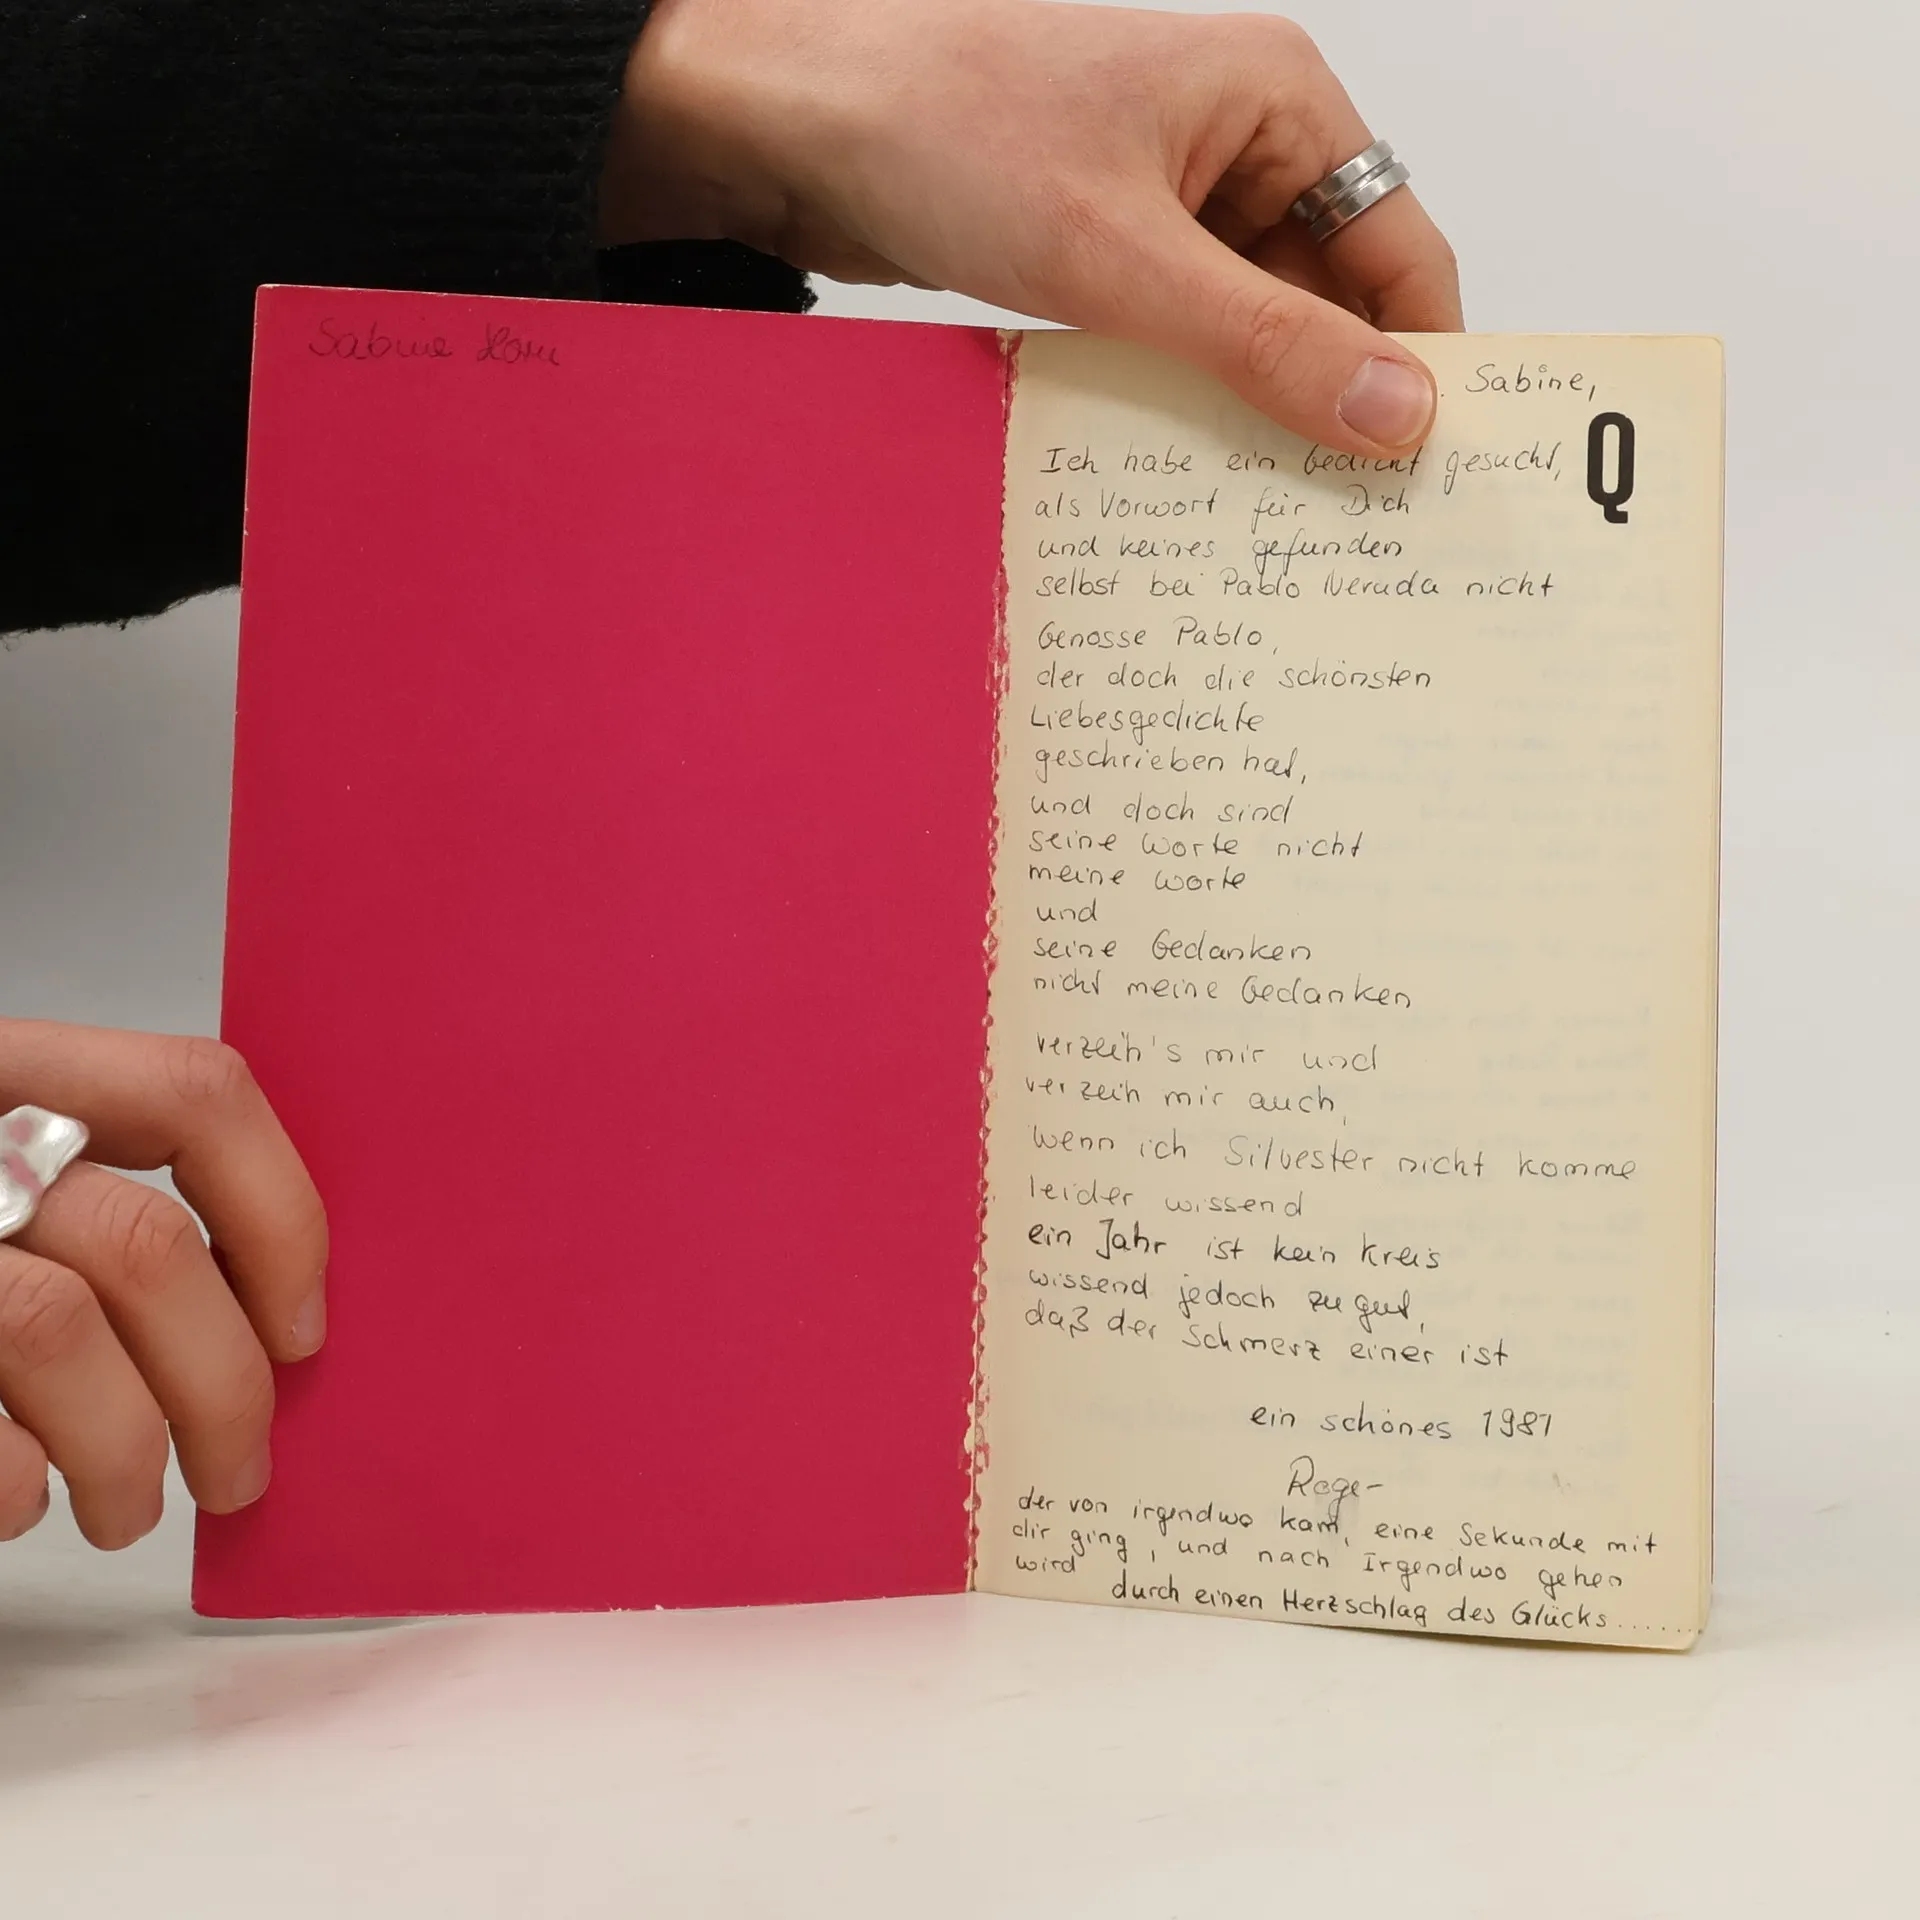 Sabine Horn
Sabine,
Q
Ich habe ein Gedicht gesucht,
als Vorwort für Dich
und keines gefunden
selbst bei Pablo Neruda nicht
Genosse Pablo,
der doch die schönsten
Liebesgedichte
geschrieben hat,
und doch sind
seine Worte nicht
meine Worte
und
seine Gedanken
nicht meine Gedanken
verzeih's mir und
verzeih mir auch,
wenn ich Silvester nicht komme
leider wissend
ein Jahr ist kein Kreis
wissend jedoch zu gut,
daß der Schmerz einer ist
ein schönes 1981
der von irgendwo kam, eine Sekunde mit
dir ging, und nach Irgendwo gehen
wird
durch einen Herzschlag des Glücks......